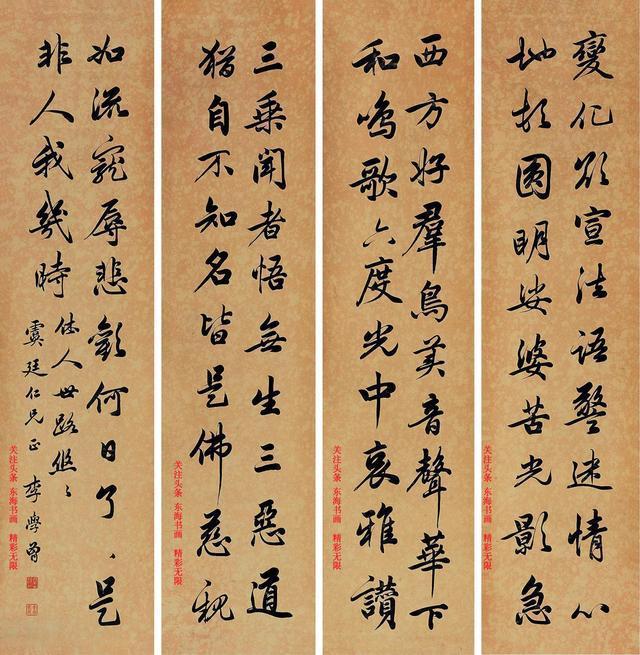 變化欲宣法語警迷情心
地頓圓明娑婆苦光影急
关注头条 东海书画 精彩无限
西方好羣鳥美音聲華下
和鳴歌六度光中哀雅讚
关注头条 东海书画 精彩无限
三乘聞者悟無生三惡道
猶自不知名皆是佛慈親
关注头条 东海书画 精彩无限
如流寵辱悲歡何日了、是
非人我幾時
休人世路悠ゝ
虞廷仁兄正
李學曾
关注头条 东海书画 精彩无限